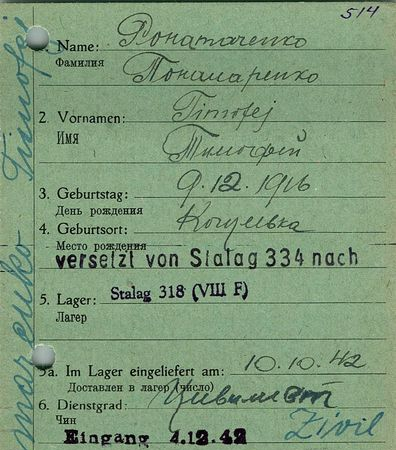 514
1. Name: Ponamarenko
Фамилия
Понамаренко
2. Vornamen: Timofej
Имя
Тимофей
3. Geburtstag: 9.12.1916
День рождения
4. Geburtsort:
Место рождения
versetzt von Stalag 334 nach
5. Lager: Stalag 318 (VIII F)
Лагер
5a. Im Lager eingeliefert am: 10.10.42
Доставлен в лагер (число)
6. Dienstgrad:
Чин
Zivil
Eingang 4.12.42
marenko Timofej